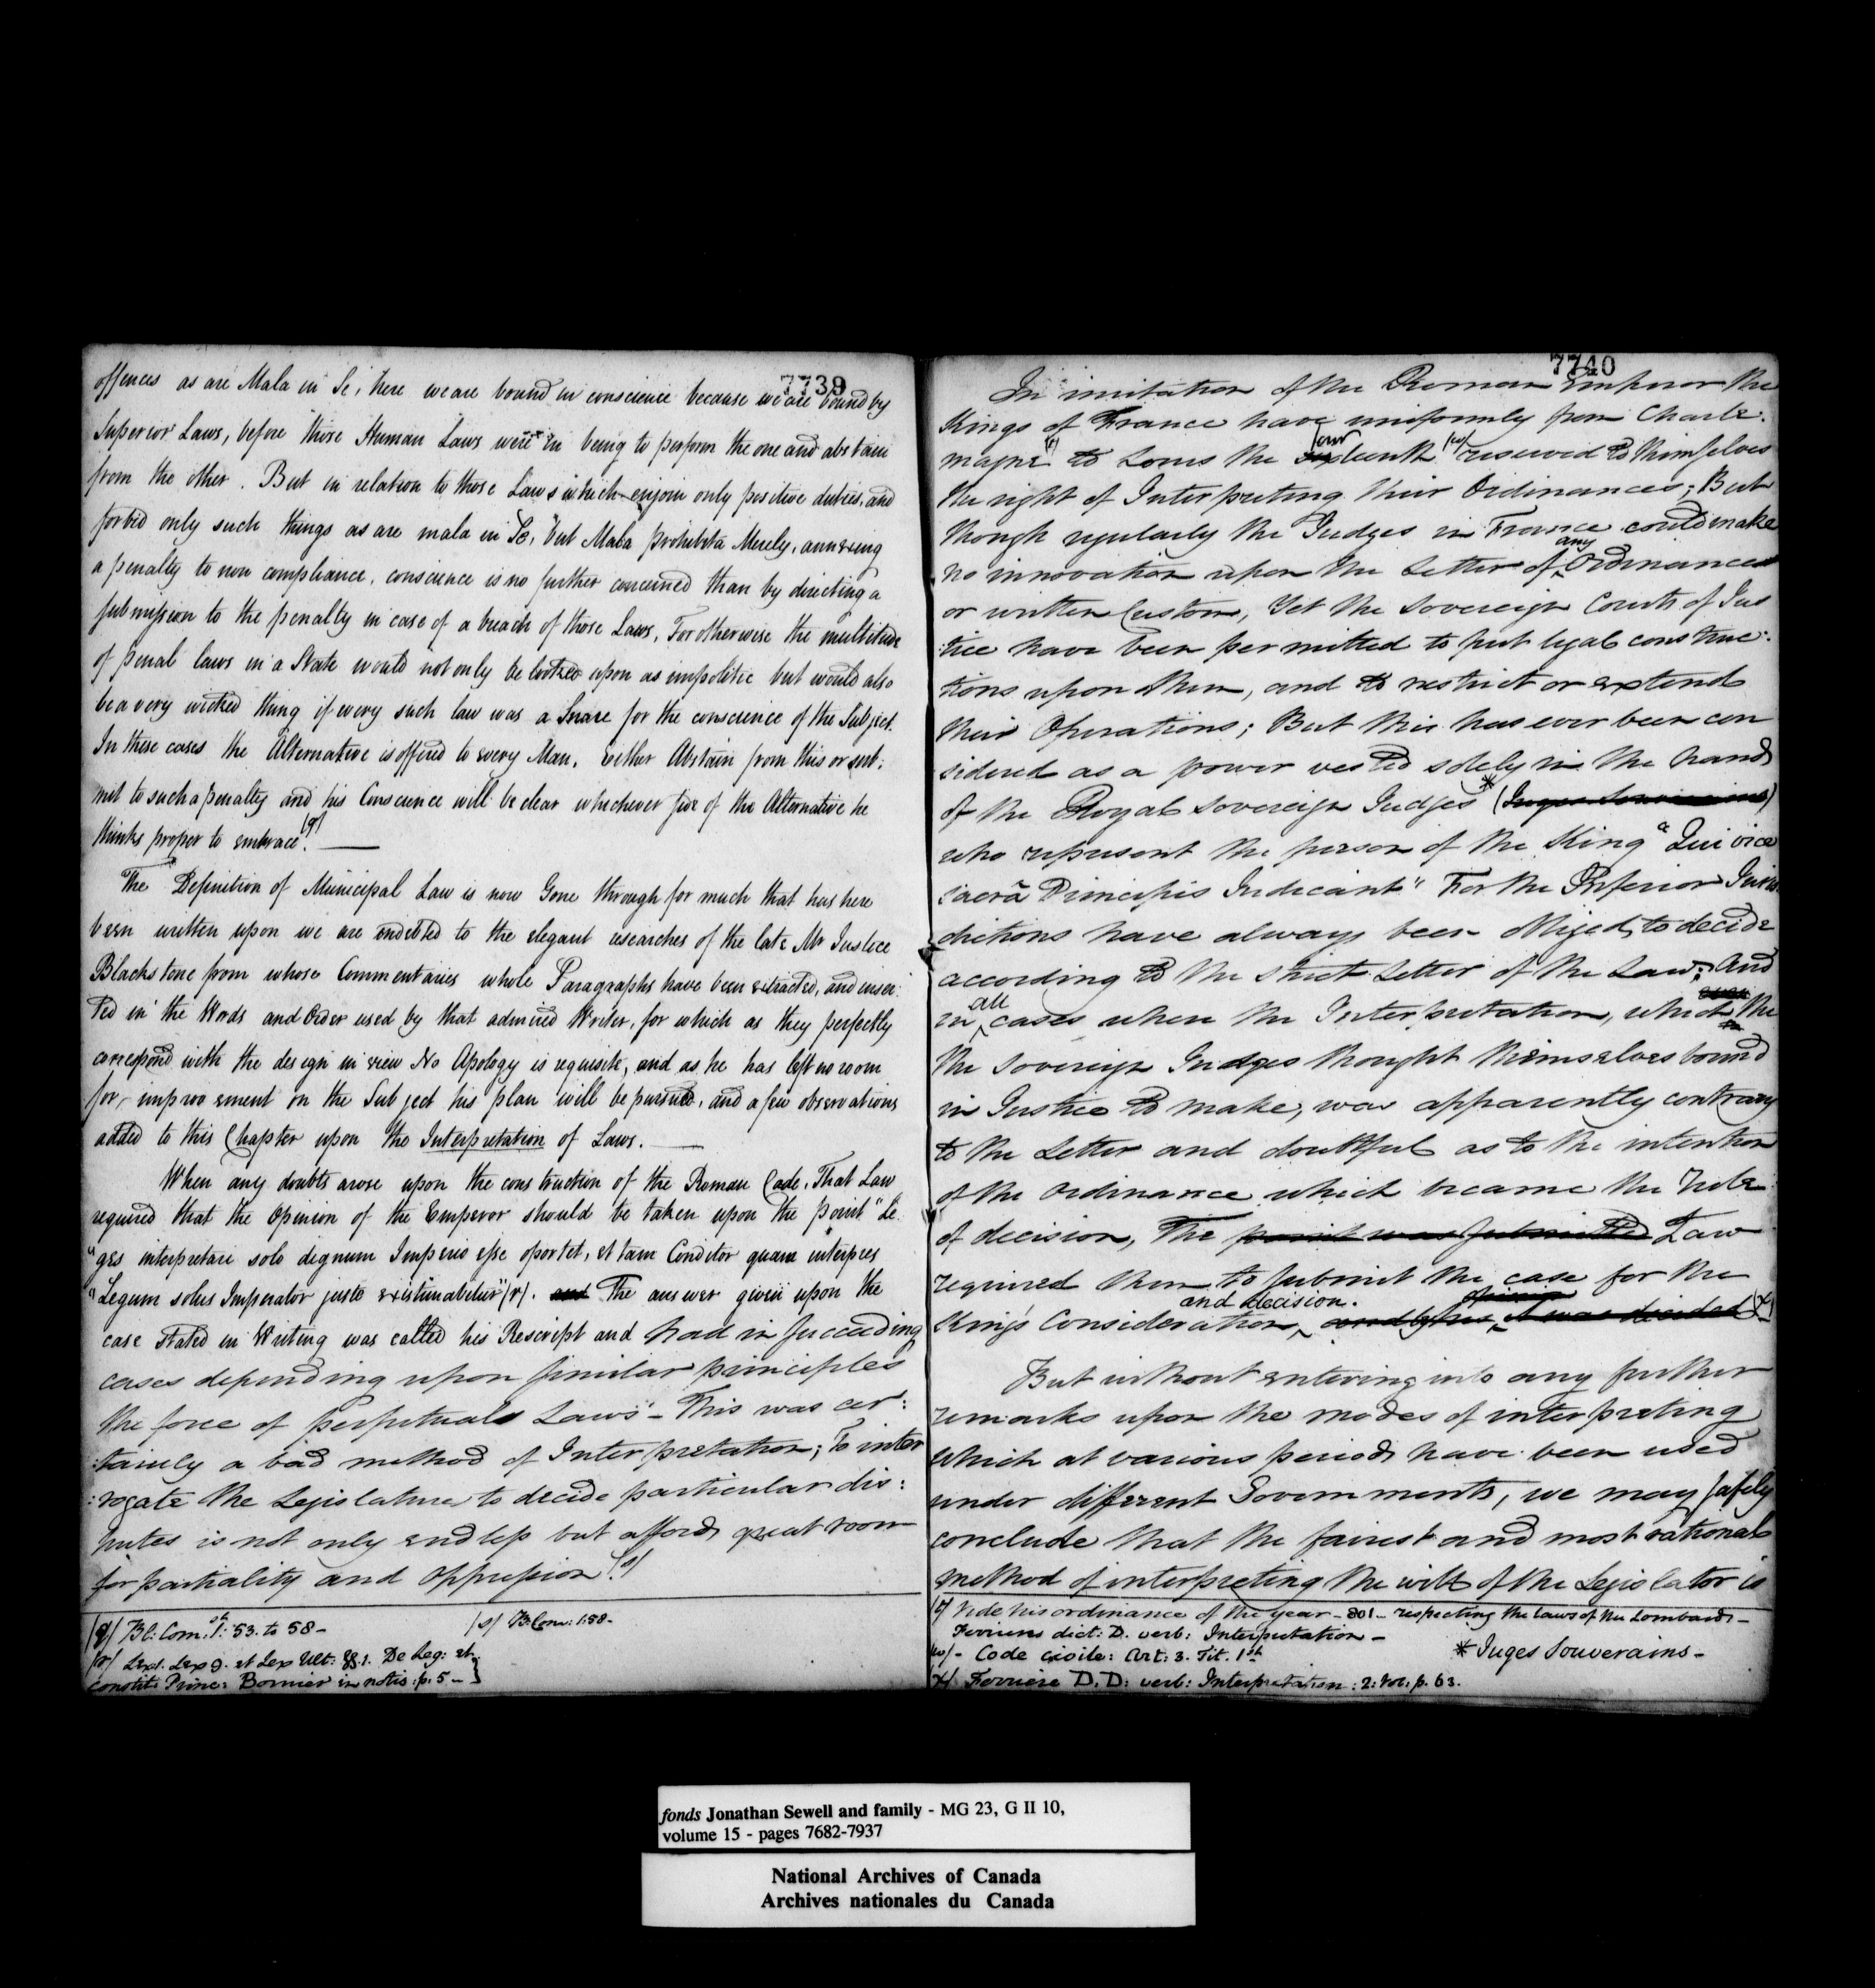 7739
offences as are Mala in Se, here we are bound in conscience because we are bound by
Superior Laws, before those Human Laws were in being to perform the one and abstain
from the other. But in relation to those Laws which enjoin only positive duties, and
forbid only such things as are mala in Se, but Mala prohibita Merely, annexing
a penalty to non compliance, conscience is no further concerned than by directing a
submission to the penalty in case of a breach of those Laws, For otherwise the multitude
of penal laws in a State would not only be looked upon as impolitic but would also
be a very wicked thing if every such law was a Snare for the conscience of the Subject.
In these cases the Alternative is offered to every Man, Either Abstain from this or sub:
mit to such a penalty and his Conscience will be clear whichever side of the Alternative he
thinks proper to embrace (q). —
The Definition of Municipal Law is now Gone through for much that has here
been written upon we are indebted to the elegant researches of the late Mr Justice
Blackstone from whose Commentaries whole Paragraphs have been extracted, and inser:
ted in the Words and Order used by that admired Writer, for which as they perfectly
correspond with the design in view No Apology is requisite, and as he has left no room
for improvement on the Subject his plan will be pursued, and a few observations
added to this Chapter upon the Interpretation of Laws. —
When any doubts arose upon the construction of the Roman Code, That Law
required that the Opinion of the Emperor should be taken upon the point "Le
"ges interpretari solo dignum Imperio esse oportet, et tam Conditor quam interpres
"Legum solus Imperator juste existimabitur" (r). and The answer given upon the
case stated in Writing was called his Rescript and had in succeeding
cases depending upon similar principles
the force of perpetual Laws - This was cer:
:tainly a bad method of Interpretation; To inter
:rogate the Legislature to decide particular dis:
putes is not only endless but affords great room
for partiality and oppression (s)
(q) Bl: Com: 1st 53. to 58 -
(s) B: Com: 1. 58 -
(r) Lex 1. Lex 9. et Lex Ult: §§. 1. De Leg: et
Constit: Princ: Bornier in notis: p. 5 -
7740
In imitation of the Roman Emperor the
Kings of France have uniformly from Charle:
four
magne (t) to Louis the Sixteenth (w) reserved to themselves
the right of Interpreting their Ordinances; But
though regularly the Judges in France could make
any
no innovation upon the Letter of Ordinances
or written Custom, Yet the Sovereign Courts of Jus
:tice have been permitted to put legal construc:
tions upon them, and to restrict or extend
their Operations; But this has ever been con
sidered as a power vested solely in the hands
of the Royal Sovereign Judges * (Juges Souverains)
who represent the person of the King "Qui vice
sacrâ Principis Judicant" For the Inferior Juris
dictions have always been obliged to decide
according to the strict Letter of the Law; And
all
in cases when the Interpretation, which the
the Sovereign Judges thought themselves bound
in Justice to make, was apparently contrary
to the Letter and doubtful as to the intention
of the Ordinance which became the Rule
of decision, The point was submitted Law
required them to submit the case for the
and decision. opinion
Kings Consideration, and by his it was decided (x)
But without entering into any further
remarks upon the modes of interpreting
which at various periods have been used
under different Governments, we may safely
conclude that the fairest and most rational
method of interpreting the will of the Legislator is
(t) Vide his ordinance of the year - 801 - respecting the laws of the Lombards -
Ferriere dict: D. verb: Interpretation -
(w) - Code civile: Art: 3. Tit. 1st
* Juges Souverains -
(x) Ferriere D. D: verb: Interpretation: 2: Vol: p. 63.
fonds Jonathan Sewell and family - MG 23, G II 10,
volume 15 - pages 7682-7937
National Archives of Canada
Archives nationales du Canada